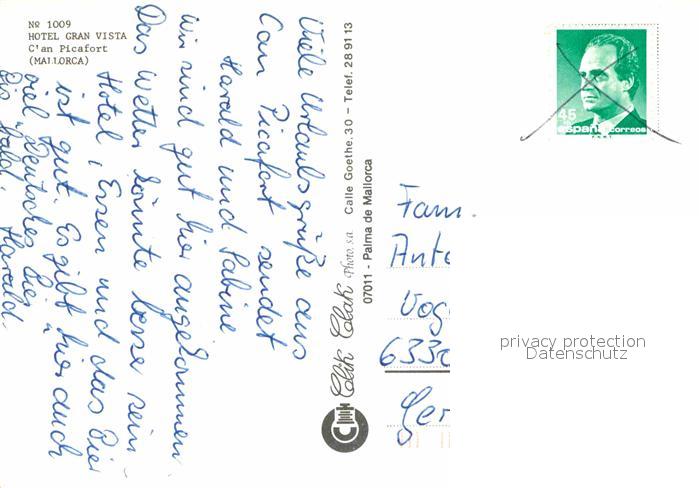 Nº 1009
HOTEL GRAN VISTA
C'an Picafort
(MALLORCA)
Viele Urlaubsgrüße aus
Can Picafort sendet
Harald und Sabine
Wir sind gut hier angekommen
Das Wetter könnte besser sein
Hotel, Essen und das Bier
ist gut. Es gibt hier auch
viel Deutsches Bier
Bis bald. Harald.
Clik Clak Photo s.a. Calle Goethe, 30 – Telef. 28 91 13
07011 - Palma de Mallorca
45
españa correos
Fam.
Ante
Vog
6330
Ger
privacy protection
Datenschutz